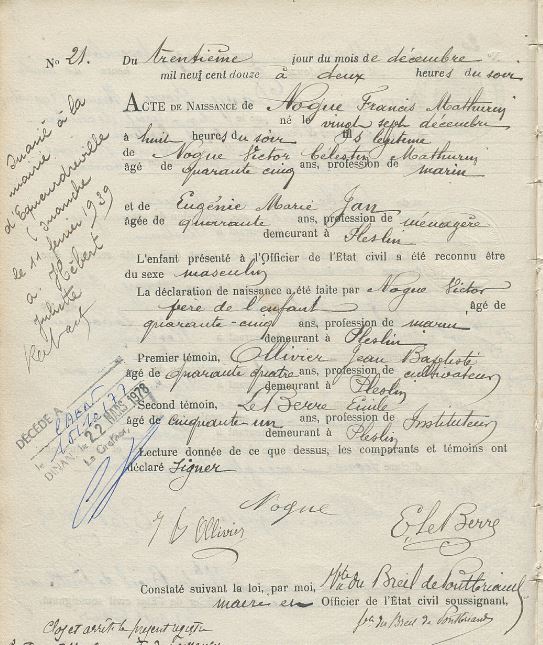 No 21.
Du trentième jour du mois de décembre
mil neuf cent douze à deux heures du soir
ACTE DE NAISSANCE de Nogue Francis Mathurin
né le vingt sept décembre
à huit heures du soir fils légitime
de Nogue Victor Célestin Mathurin
âgé de quarante cinq ans, profession de marin
et de Eugénie Marie Jan
âgée de quarante ans, profession de ménagère
demeurant à Pleslin
L'enfant présenté à l'Officier de l'État civil a été reconnu être
du sexe masculin
La déclaration de naissance a été faite par Nogue Victor
père de l'enfant âgé de
quarante-cinq ans, profession de marin
demeurant à Pleslin
Premier témoin, Ollivier Jean Baptiste
âgé de quarante quatre ans, profession de cultivateur
demeurant à Pleslin
Second témoin, Le Berre Emile
âgé de cinquante un ans, profession de Instituteur
demeurant à Pleslin
Lecture donnée de ce que dessus, les comparants et témoins ont
déclaré signer
Nogue
Ollivier
E. Le Berre
Constaté suivant la loi, par moi, Vte du Breil de Pontbriand
maire en Officier de l'État civil soussigné,
du Breil de Pontbriand
Clos et arrêté le présent registre
Marié à la
mairie
d'Equeurdreville
(Manche)
le 11 février 1939
à Hébert
Juliette
DÉCÉDÉ A
le
DINAN, le 22 MARS 1978
Le Greffier